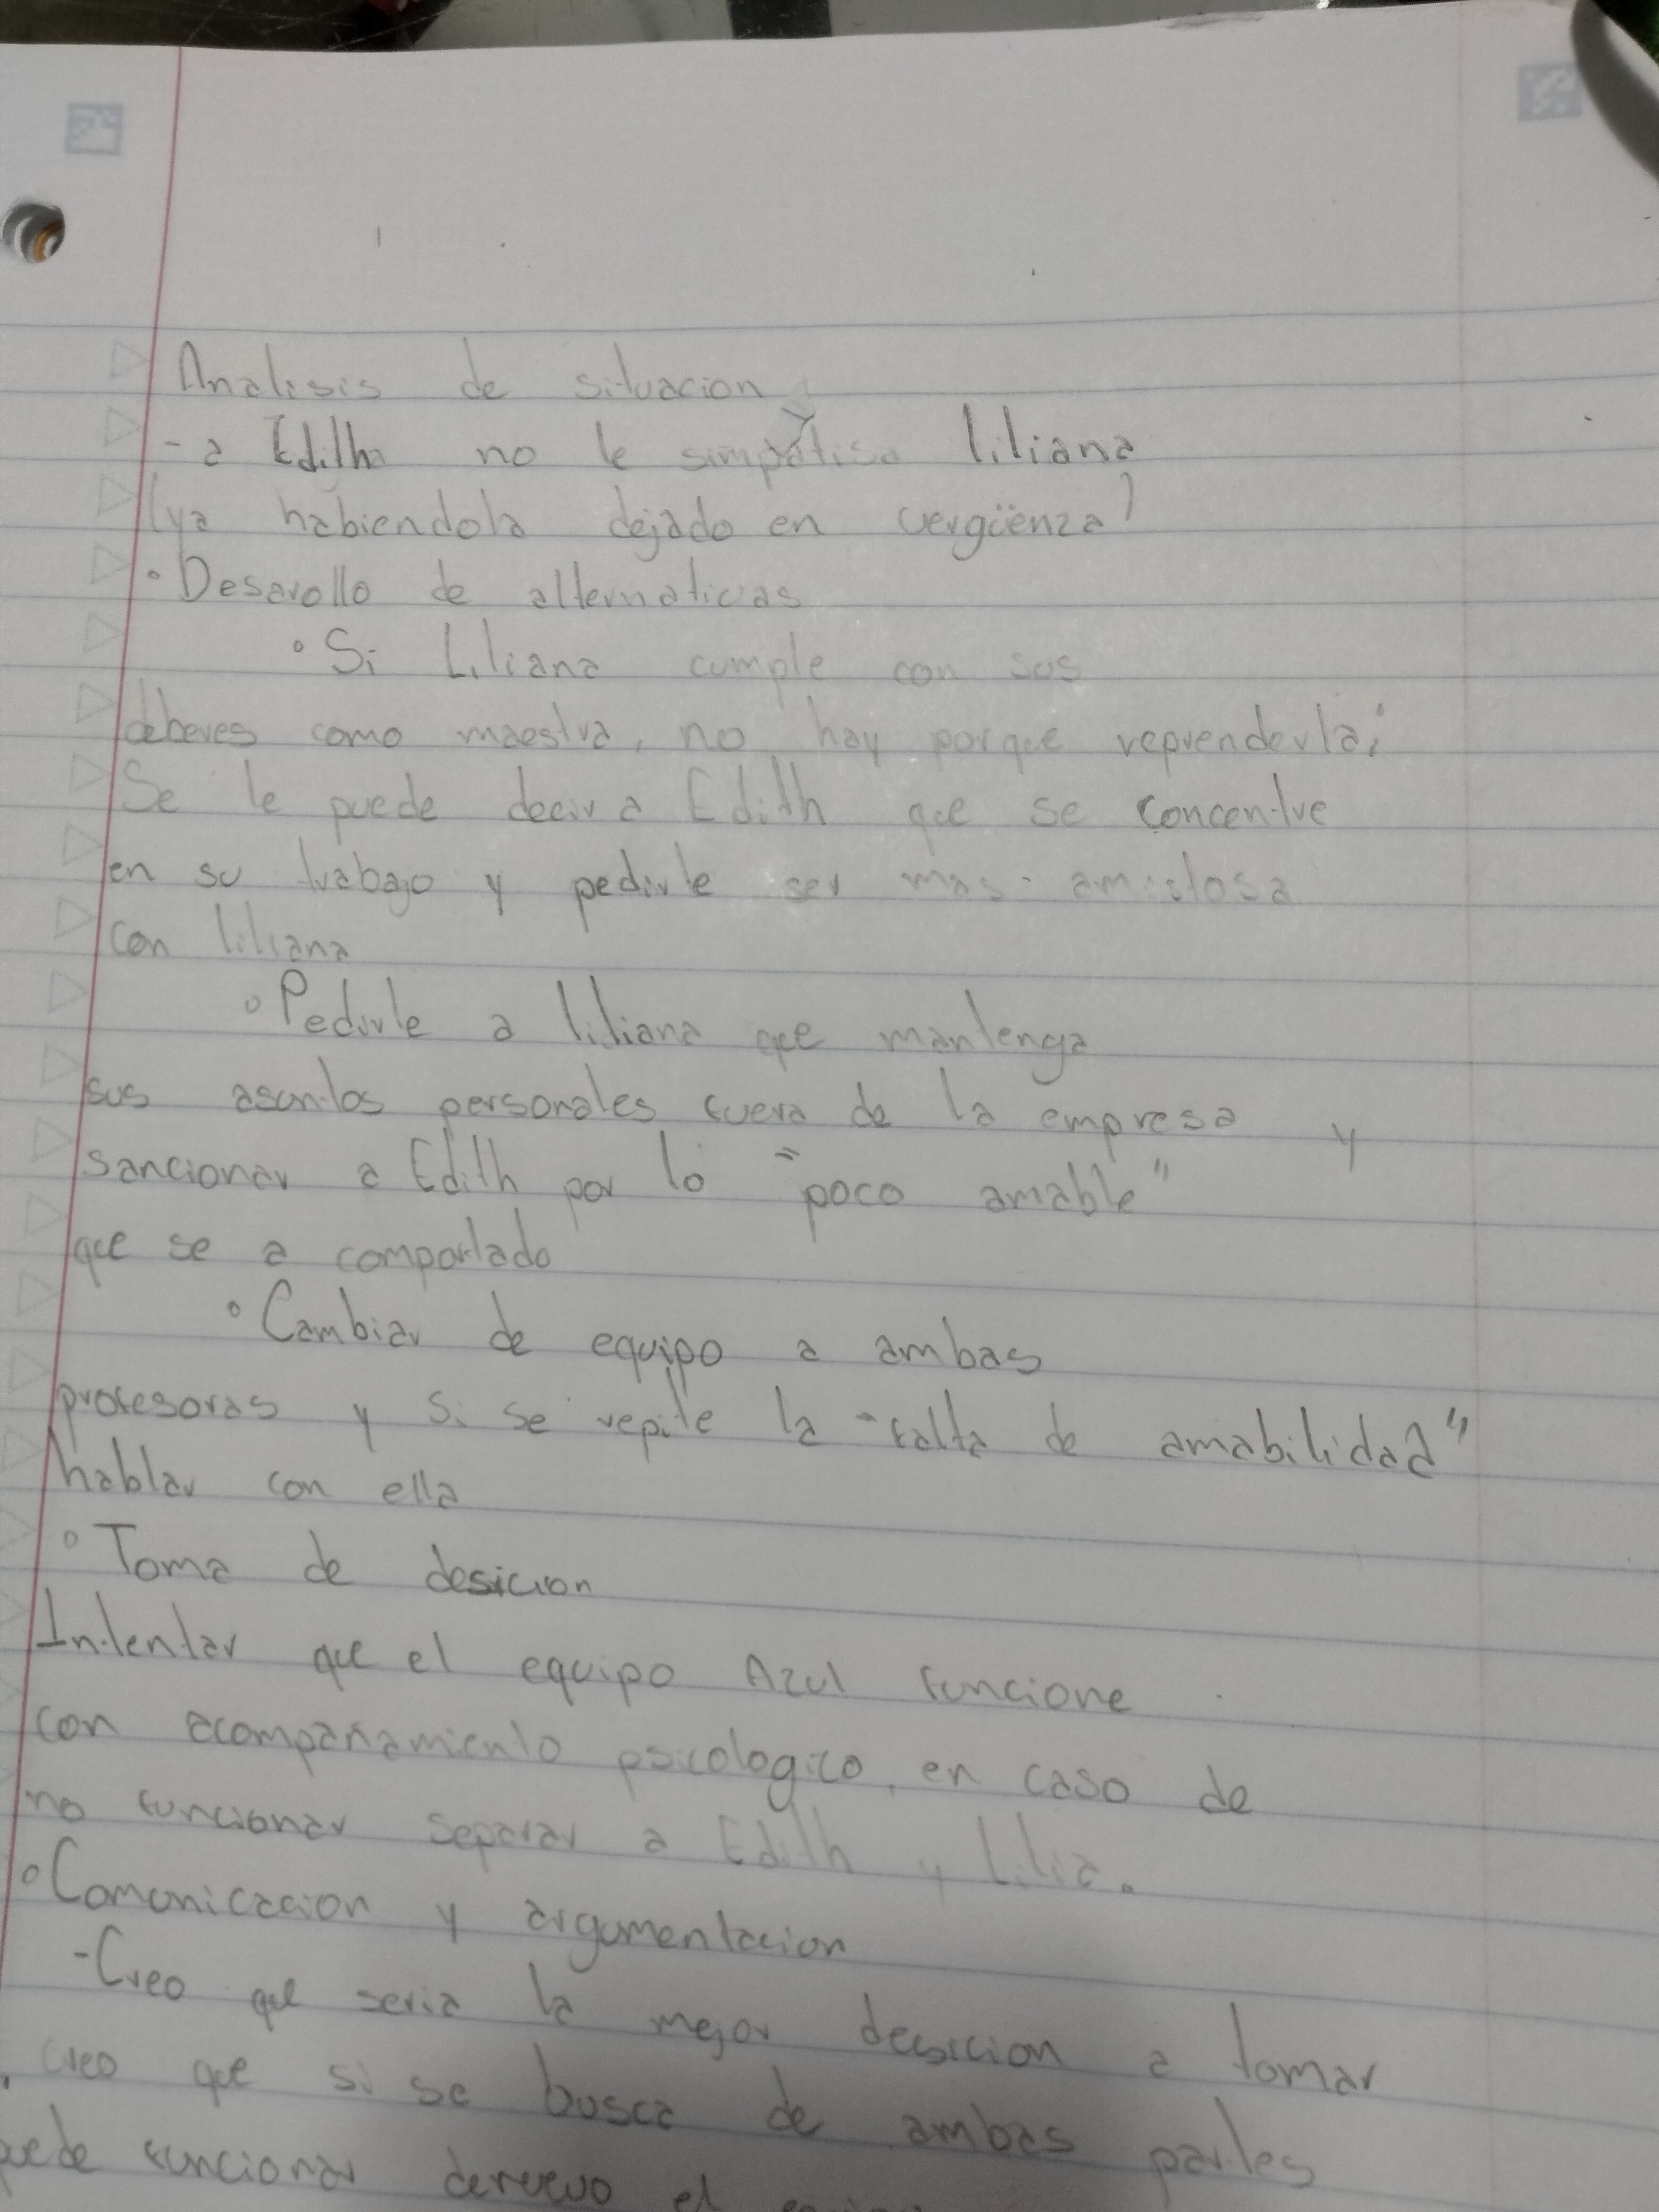 Analisis de situacion
- a Edilha no le simpatisa liliana
(ya habiendola dejado en vergüenza)
• Desarollo de alternativas
• Si Liliana cumple con sus
deberes como maestra, no hay porque reprenderla;
Se le puede decir a Edith que se concentre
en su trabajo y pedirle ser mas amistosa
con liliana
• Pedirle a liliana que mantenga
sus asuntos personales fuera de la empresa y
sancionar a Edith por lo "poco amable"
que se a comportado
• Cambiar de equipo a ambas
profesoras y si se repite la "falta de amabilidad"
hablar con ella
• Toma de desicion
Intentar que el equipo Azul funcione
con acompañamiento psicologico, en caso de
no funcionar separar a Edith y Lilia.
• Comunicacion y argumentacion
- Creo que seria la mejor desicion a tomar
, creo que si se busca de ambas partes
puede funcionar denuevo el